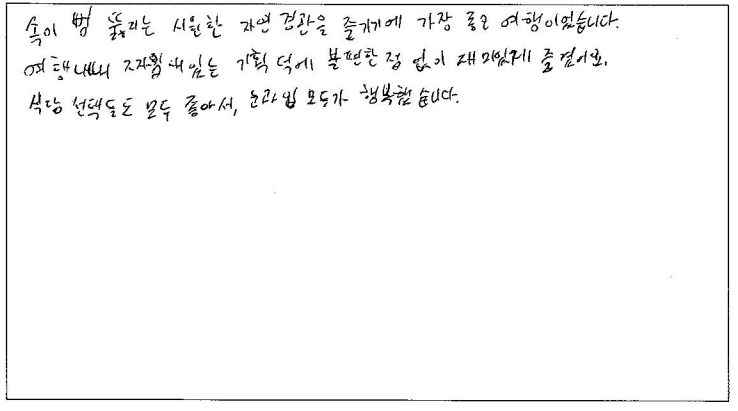 속이 뻥 뚫리는 시원한 자연 경관을 즐기기에 가장 좋은 여행이었습니다.
여행내내 재미있는 기획 덕에 불편한 점 없이 재미있게 즐겼어요.
식당 선택들도 모두 좋아서, 눈과 입 모두가 행복했습니다.